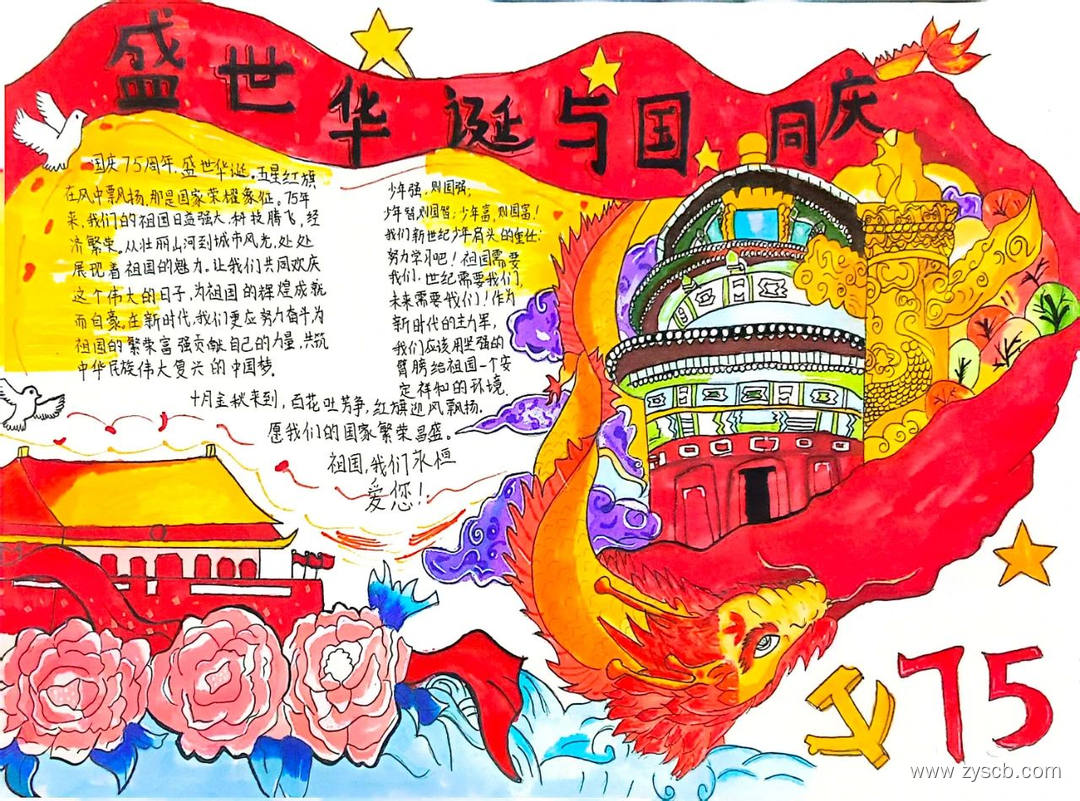 盛世华诞与国同庆
国庆75周年,盛世华诞。五星红旗
在风中飘扬,那是国家荣耀象征。75年
来,我们的祖国日益强大,科技腾飞,经
济繁荣。从壮丽山河到城市风光,处处
展现着祖国的魅力。让我们共同欢庆
这个伟大的日子,为祖国的辉煌成就
而自豪。在新时代,我们更应努力奋斗为
祖国的繁荣富强贡献自己的力量,共筑
中华民族伟大复兴的中国梦。
少年强,则国强;
少年智,则国智;少年富,则国富!
我们新世纪少年肩头的重任:
努力学习吧!祖国需要
我们,世纪需要我们,
未来需要我们!作为
新时代的主力军,
我们应该用坚强的
臂膀给祖国一个安
定祥和的环境。
十月金秋来到,百花吐芳争,红旗迎风飘扬。
愿我们的国家繁荣昌盛。
祖国,我们永恒
爱您!
75
www.zyscb.com